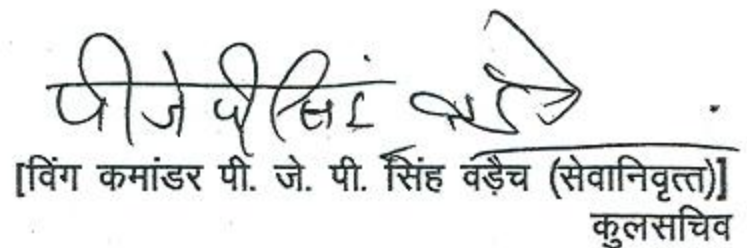 पी जे पी सिंह
[विंग कमांडर पी. जे. पी. सिंह वड़ैच (सेवानिवृत्त)]
कुलसचिव